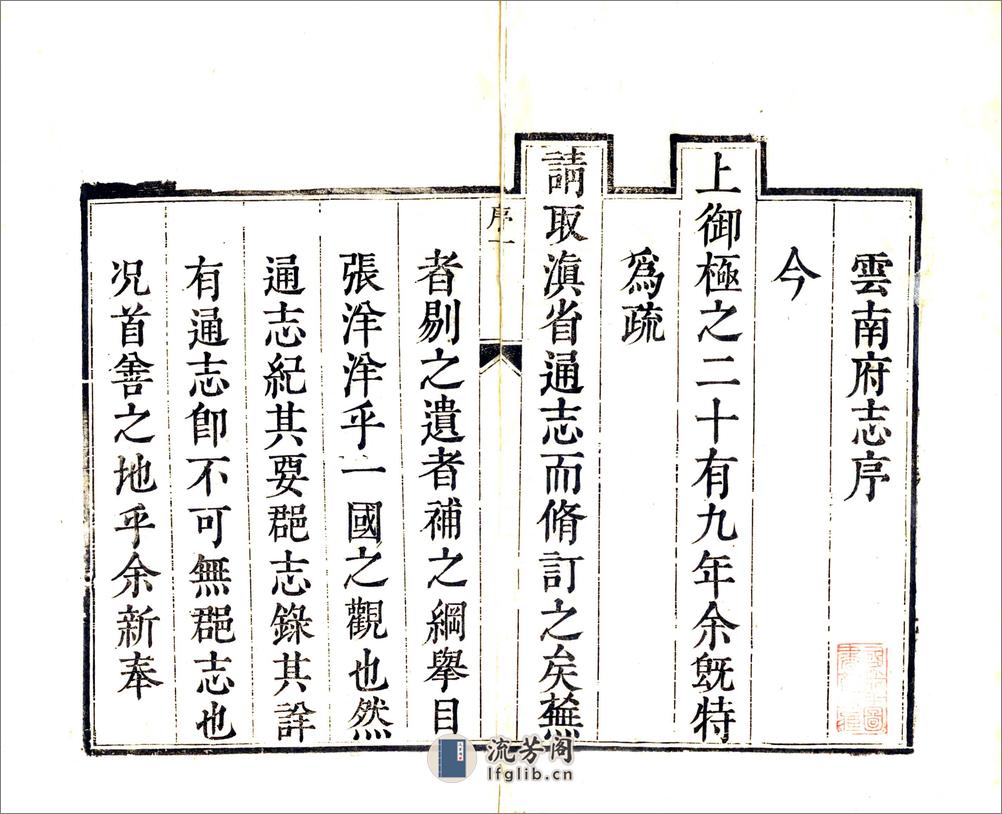 雲南府志序
今
上御極之二十有九年余旣特
爲疏
請取滇省通志而脩訂之矣蕪
序一
者剔之遺者補之綱擧目
張洋洋乎一國之觀也然
通志紀其要郡志錄其詳
有通志卽不可無郡志也
况首善之地乎余新奉
流芳阁
lfglib.cn